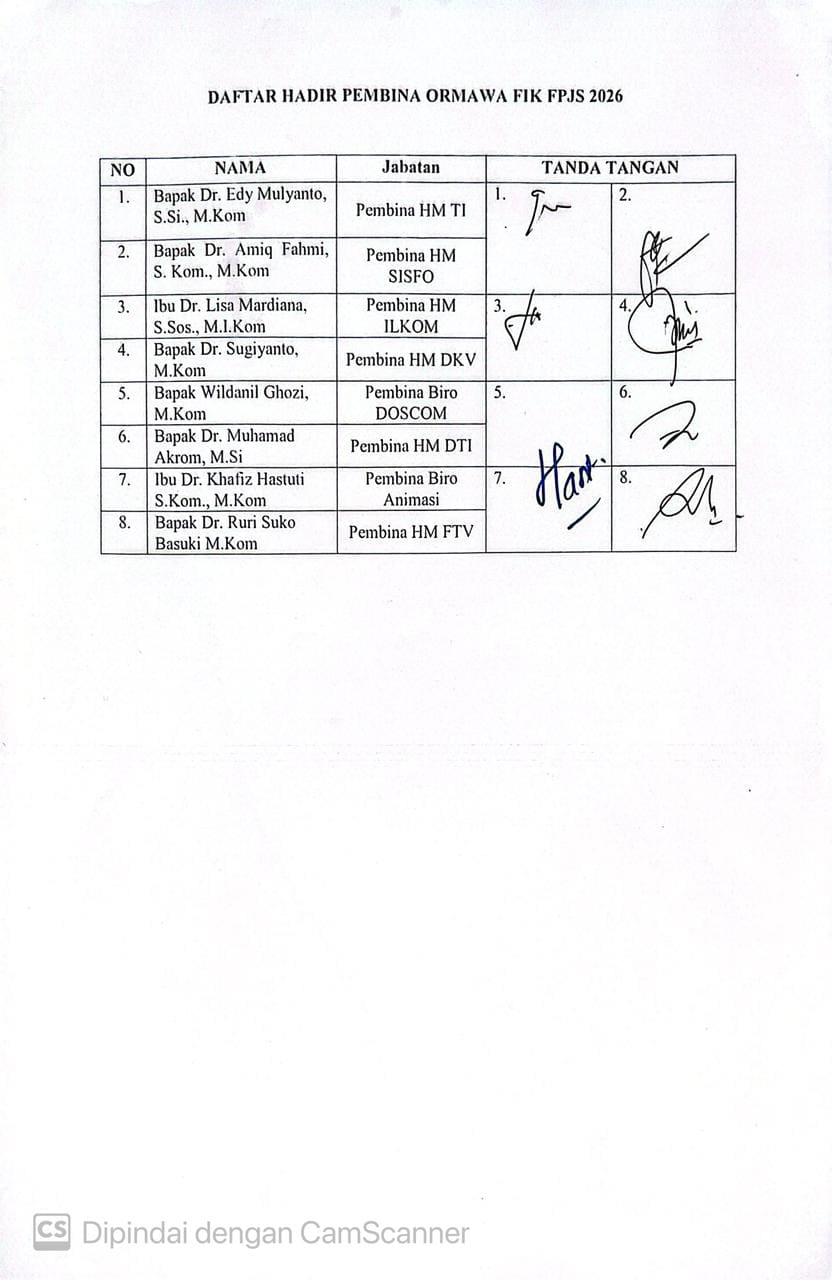 DAFTAR HADIR PEMBINA ORMAWA FIK FPJS 2026
NO NAMA Jabatan TANDA TANGAN
1. Bapak Dr. Edy Mulyanto, S.Si., M.Kom Pembina HM TI 1. 2.
2. Bapak Dr. Amiq Fahmi, S. Kom., M.Kom Pembina HM SISFO
3. Ibu Dr. Lisa Mardiana, S.Sos., M.I.Kom Pembina HM ILKOM 3. 4.
4. Bapak Dr. Sugiyanto, M.Kom Pembina HM DKV
5. Bapak Wildanil Ghozi, M.Kom Pembina Biro DOSCOM 5. 6.
6. Bapak Dr. Muhamad Akrom, M.Si Pembina HM DTI
7. Ibu Dr. Khafiz Hastuti S.Kom., M.Kom Pembina Biro Animasi 7. 8.
8. Bapak Dr. Ruri Suko Basuki M.Kom Pembina HM FTV
CS Dipindai dengan CamScanner